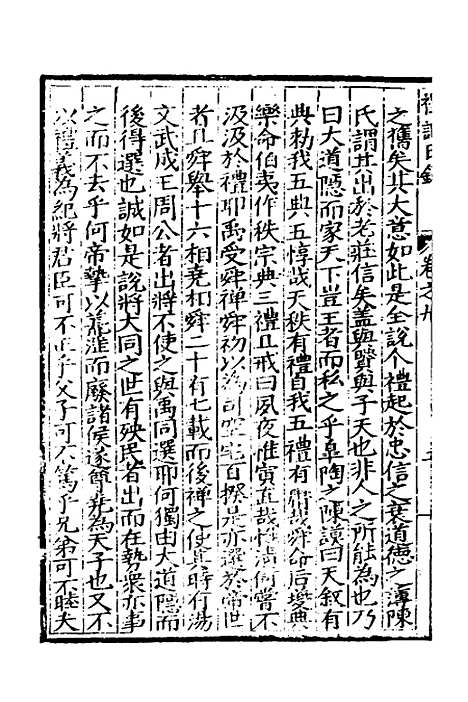 之舊矣其大意如此是全說个禮起於忠信之衰道德之薄陳
氏謂其出於老莊信矣蓋與賢與子天也非人之所能為也乃
曰大道隱而家天下豈王者而私之乎皐陶之陳謨曰天叙有
典勑我五典五惇哉天秩有禮自我五禮有庸哉舜命后夔典
樂命伯夷作秩宗典三禮且戒曰夙夜惟寅直哉惟清何嘗不
汲汲於禮耶禹受舜禪舜初以為司空宅百揆是亦選於帝世
者且舜舉十六相堯相舜二十有七載而後禪之使其時有湯
文武成王周公者出將不使之與禹同選耶何獨由大道隱而
後得選也誠如是說將大同之世有殃民者出而在勢衆亦事
之而不去乎何帝摯以荒淫而廢諸侯遂尊堯為天子也又不
以禮義為紀將君臣可不正乎父子可不篤乎兄弟可不睦夫